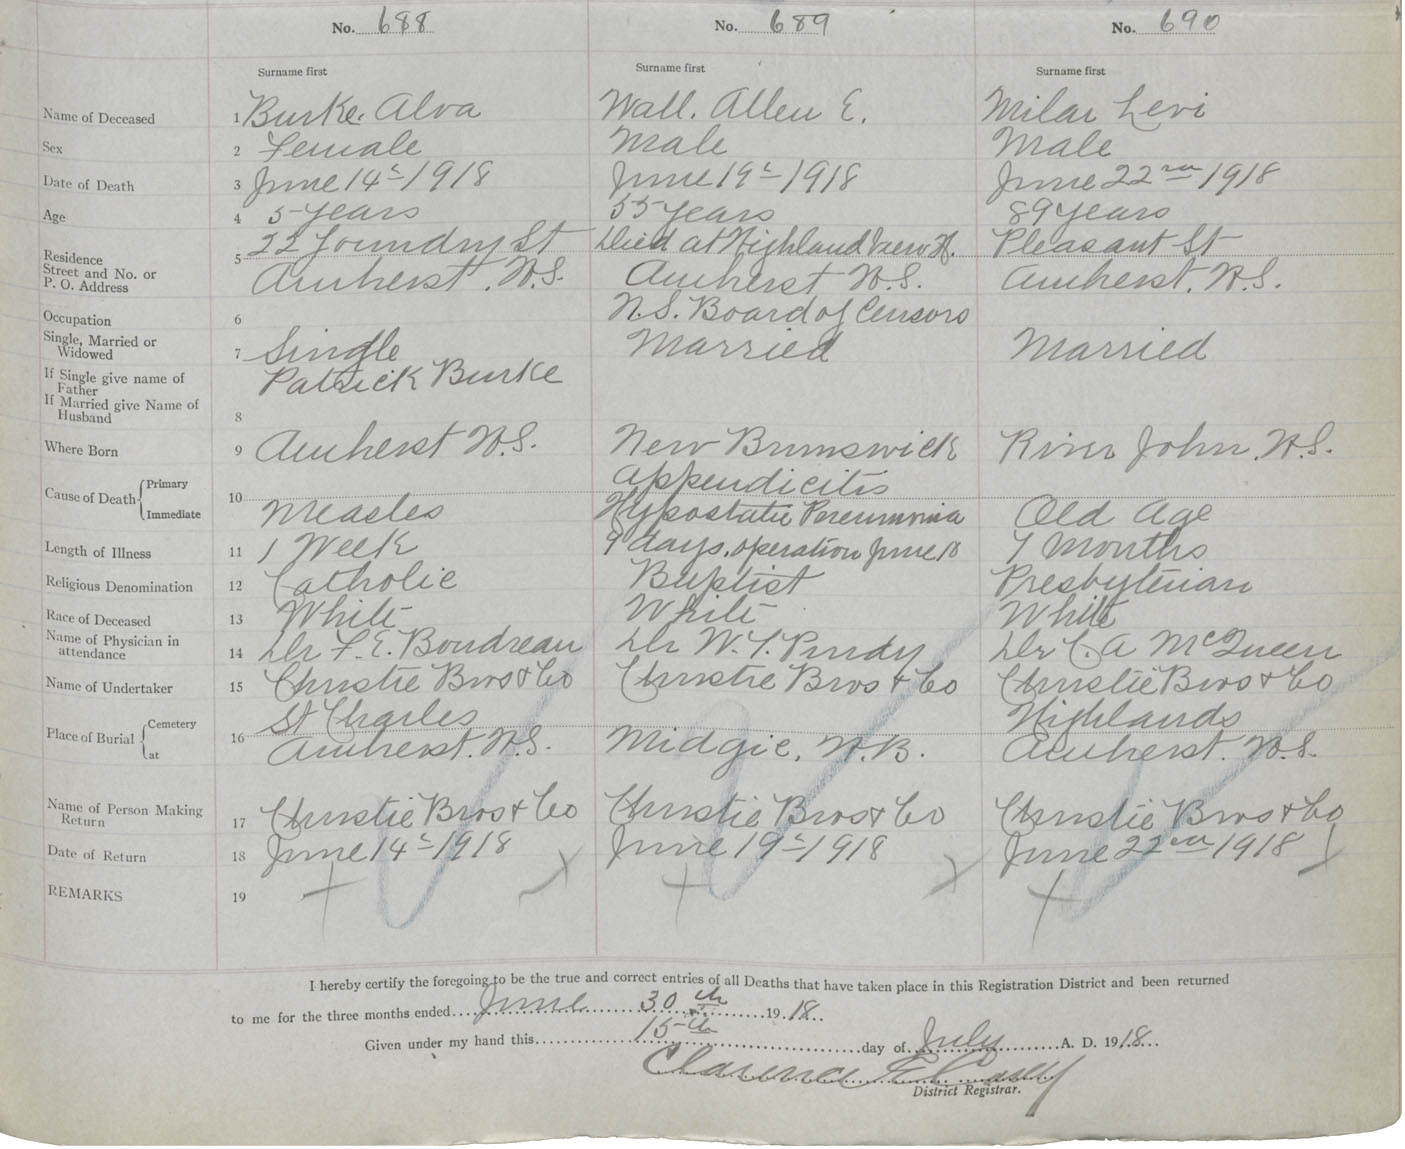 No. 688 No. 689 No. 690
Surname first Surname first Surname first
Name of Deceased 1 Burke. Alva Wall. Allen E. Milar Levi
Sex 2 Female Male Male
Date of Death 3 June 14th 1918 June 19th 1918 June 22nd 1918
Age 4 5 years 55 years 89 years
Residence 22 Foundry St Died at Highland View H. Pleasant St
Street and No. or 5
P. O. Address Amherst. N.S. Amherst N.S. Amherst. N.S.
Occupation 6 N.S. Board of Censors
Single, Married or
Widowed 7 Single Married Married
If Single give name of Patrick Burke
Father
If Married give Name of
Husband 8
Where Born 9 Amherst N.S. New Brunswick River John. N.S.
Cause of Death Primary 10 Appendicitis
Immediate Measles Hypostatic Pneumonia Old Age
Length of Illness 11 1 Week 9 days. operation June 10 7 Months
Religious Denomination 12 Catholic Baptist Presbyterian
Race of Deceased 13 White White White
Name of Physician in
attendance 14 Dr F. E. Boudreau Dr W. T. Purdy Dr C. A McQueen
Name of Undertaker 15 Christie Bros & Co Christie Bros & Co Christie Bros & Co
Place of Burial Cemetery 16 St Charles Highlands
at Amherst. N.S. Midgic, N.B. Amherst. N.S.
Name of Person Making
Return 17 Christie Bros & Co Christie Bros & Co Christie Bros & Co
Date of Return 18 June 14th 1918 June 19th 1918 June 22nd 1918
REMARKS 19
I hereby certify the foregoing to be the true and correct entries of all Deaths that have taken place in this Registration District and been returned
to me for the three months ended June 30th 1918
Given under my hand this 15th day of July A. D. 1918
Clarence
District Registrar.